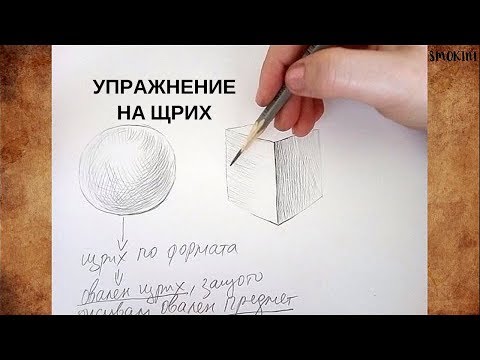 SMOKINI
УПРАЖНЕНИЕ
НА ЩРИХ
щрих по формата
овален щрих, защото
рисувам овален предмет